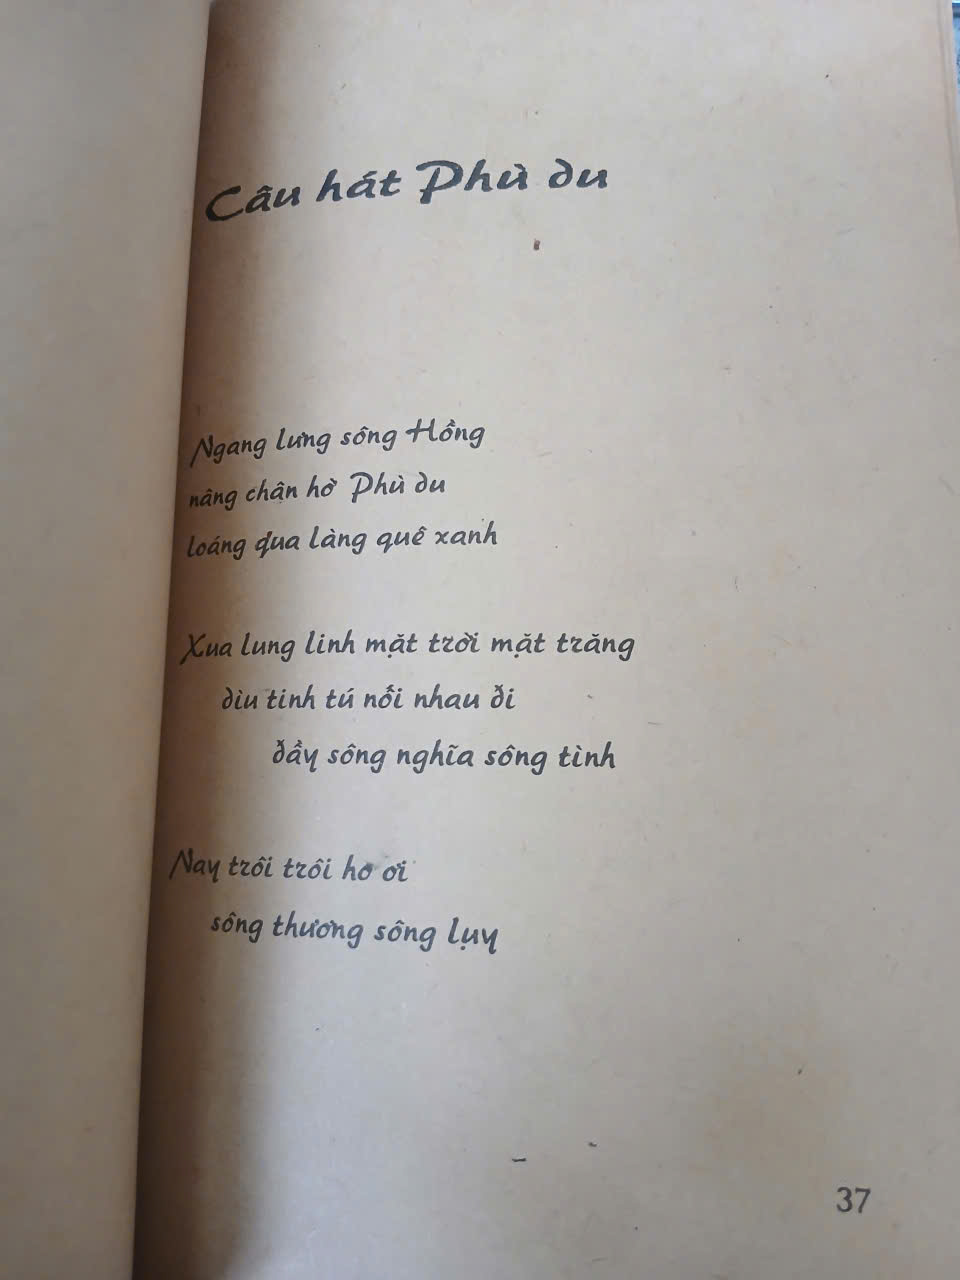 Câu hát Phù du
Ngang lưng sông Hồng
nâng chân hờ Phù du
loáng qua làng quê xanh
Xua lung linh mặt trời mặt trăng
dìu tinh tú nối nhau đi
đầy sông nghĩa sông tình
Nay trôi trôi hơ ơi
sông thương sông lụy
37